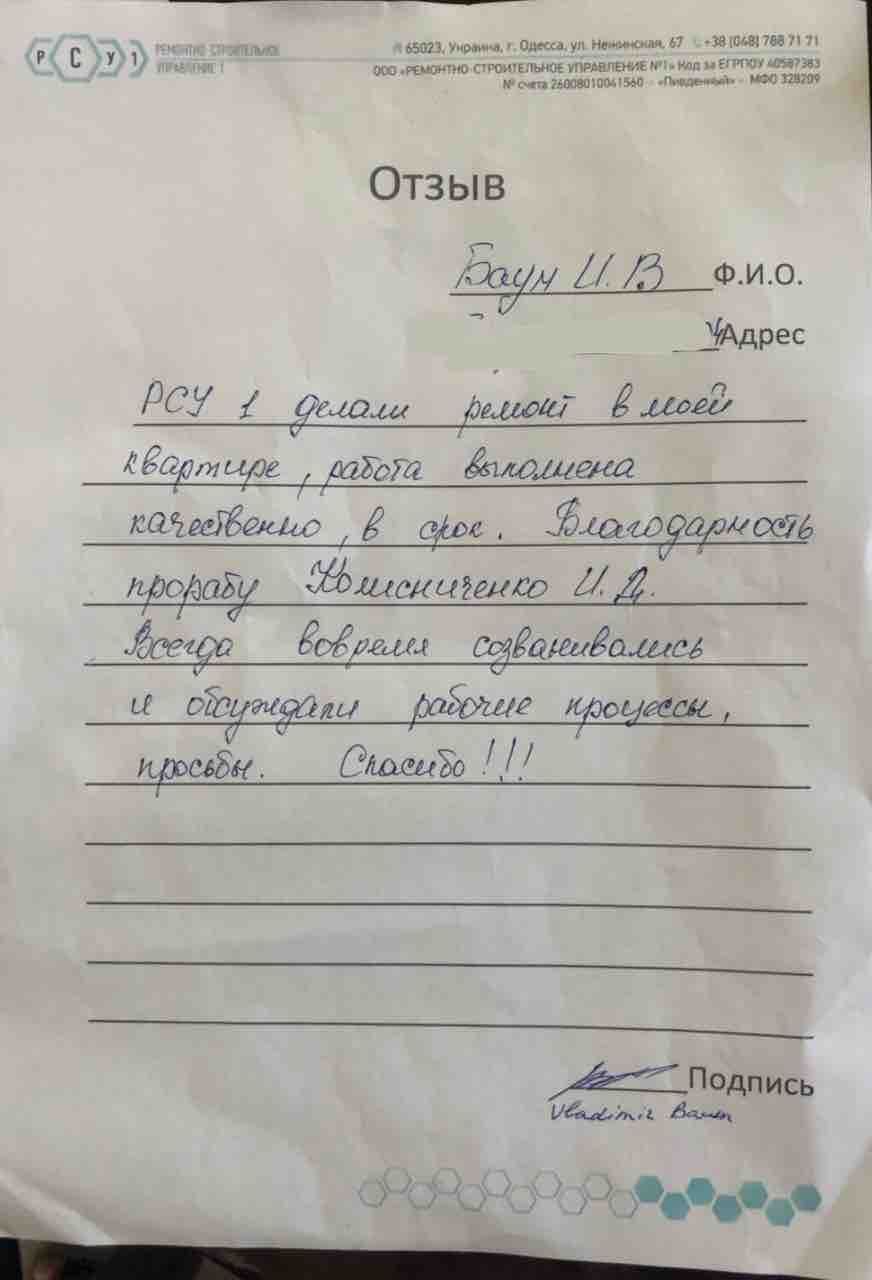 Р С У 1
РЕМОНТНО-СТРОИТЕЛЬНОЕ
УПРАВЛЕНИЕ 1
65023, Украина, г. Одесса, ул. Нежинская, 67 +38 (048) 788 71 71
ООО «РЕМОНТНО-СТРОИТЕЛЬНОЕ УПРАВЛЕНИЕ №1» Код за ЕГРПОУ 40587383
№ счета 26008010041560 - «Пивденный» - МФО 328209
Отзыв
Баум И. В Ф.И.О.
Адрес
РСУ 1 делали ремонт в моей
квартире, работа выполнена
качественно, в срок. Благодарность
прорабу Колисниченко И. Д.
Всегда вовремя созванивались
и обсуждали рабочие процессы,
просьбы. Спасибо!!!
Подпись
Vladimir